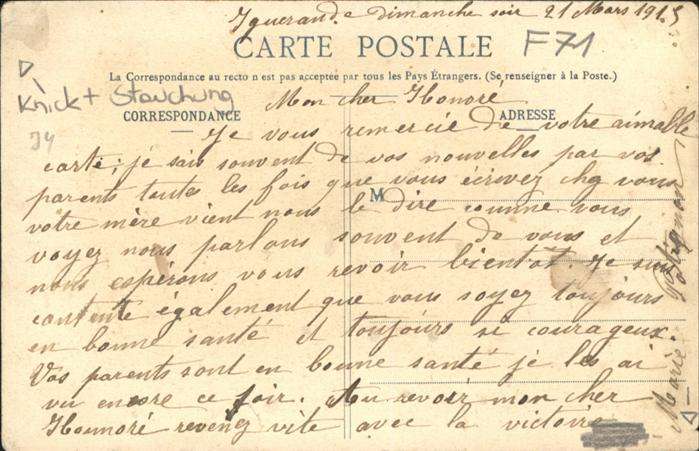 Iguerande dimanche soir 21 Mars 1915
CARTE POSTALE
F71
La Correspondance au recto n'est pas acceptée par tous les Pays Étrangers. (Se renseigner à la Poste.)
Knick + Stauchung
CORRESPONDANCE
ADRESSE
Mon cher Honoré
Je vous remercie de votre aimable
carte; je sais souvent de vos nouvelles par vos
parents toutes les fois que vous écrivez chez vous
votre mère vient nous le dire comme vous
M
voyez nous parlons souvent de vous et
nous espérons vous revoir bientôt. Je suis
contente également que vous soyez toujours
en bonne santé et toujours si courageux.
Vos parents sont en bonne santé je les ai
vu encore ce soir. Au revoir mon cher
Honnoré revenez vite avec la victoire
Marie